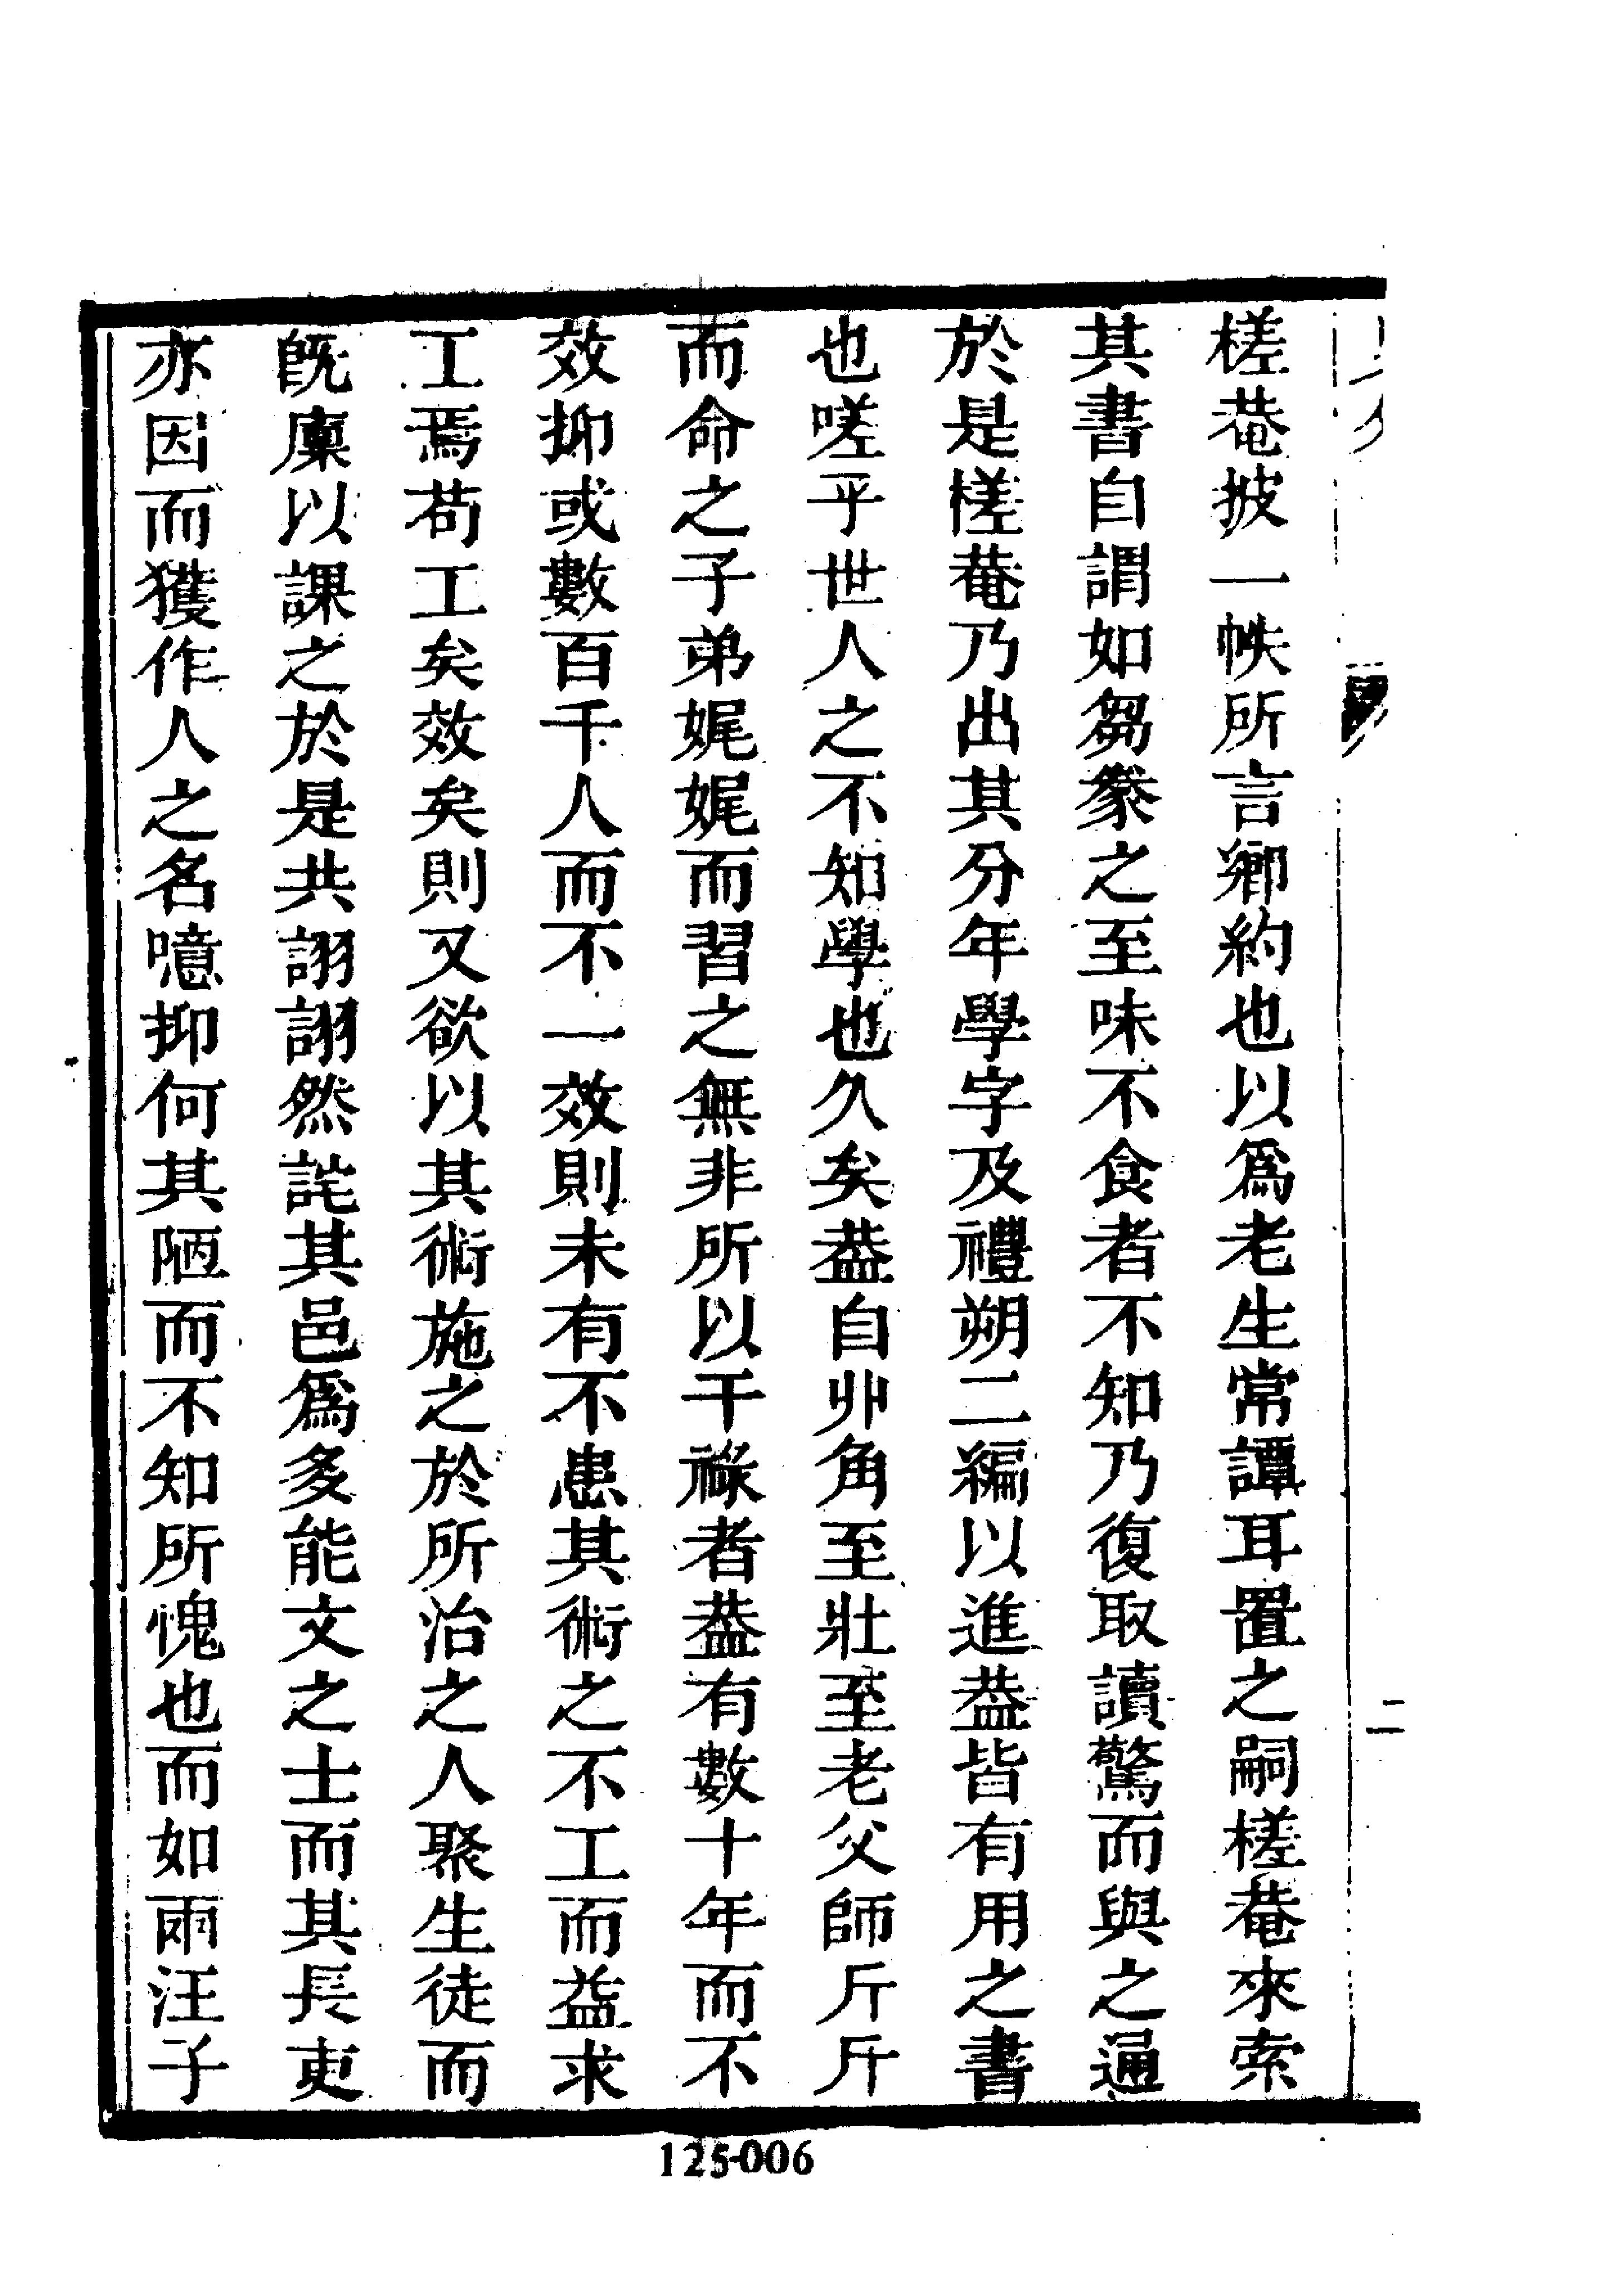 槎菴披一帙所言鄉約也以爲老生常譚耳置之嗣槎菴來索
其書自謂如芻豢之至味不食者不知乃復取讀驚而與之通
於是槎菴乃出其分年學字及禮朔二編以進葢皆有用之書
也嗟乎世人之不知學也久矣葢自丱角至壯至老父師斤斤
而命之子弟娓娓而習之無非所以干祿者葢有數十年而不
效抑或數百千人而不一效則未有不患其術之不工而益求
工焉苟工矣效矣則又欲以其術施之於所治之人聚生徒而
旣廩以課之於是共詡詡然詫其邑爲多能文之士而其長吏
亦因而獲作人之名噫抑何其陋而不知所愧也而如雨汪子
二
125-006